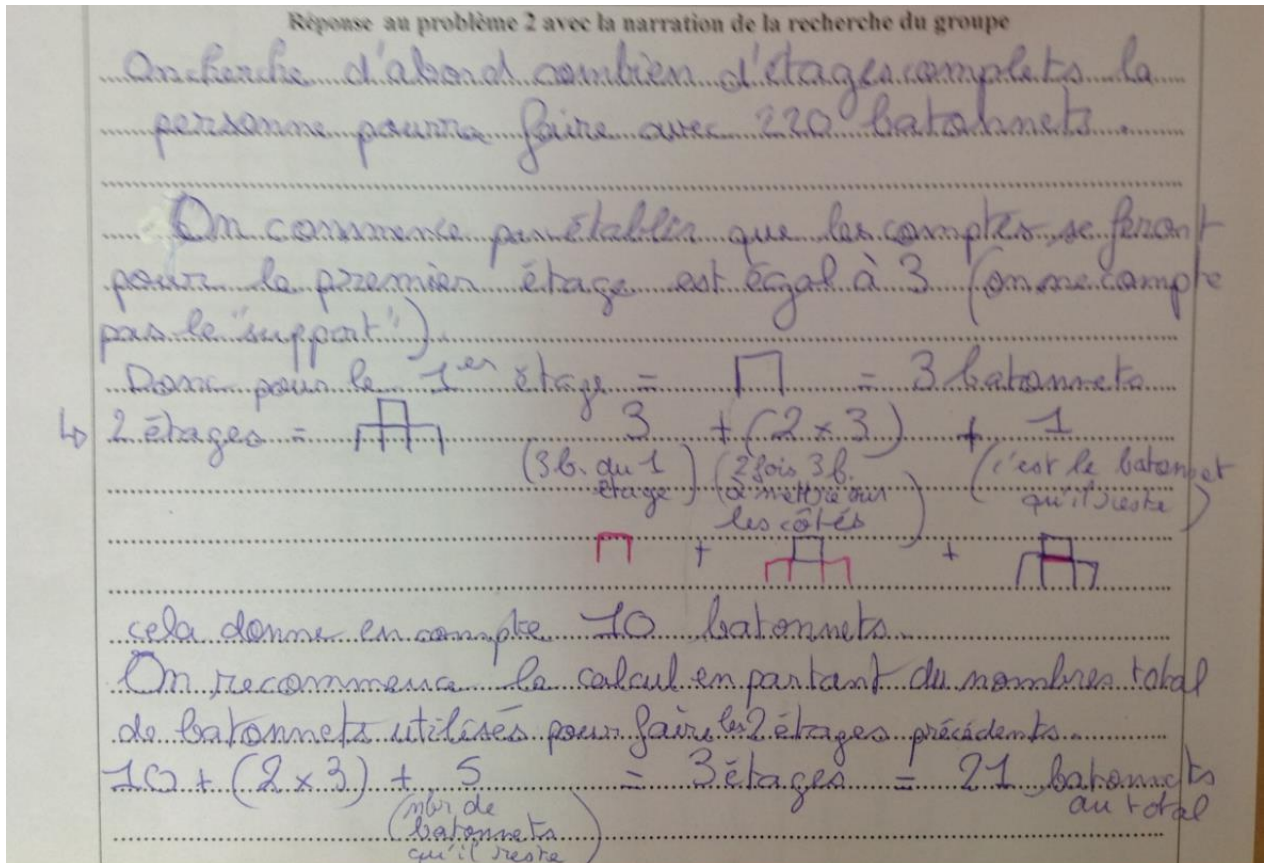 Réponse au problème 2 avec la narration de la recherche du groupe
On cherche d'abord combien d'étages complets la
personne pourra faire avec 220 batonnets.
On commence par établir que les comptes se feront
pour le premier étage est égal à 3 (on ne compte
pas le "support").
Donc pour le 1er étage = = 3 batonnets
↳ 2 étages = 3 + (2 x 3) + 1
(3b. du 1 étage) (2 fois 3 b. à mettre sur les côtés) (c'est le batonnet qu'il reste)
+ +
cela donne en compte 10 batonnets.
On recommence le calcul en partant du nombres total
de batonnets utilisés pour faire les 2 étages précédents.
10 + (2 x 3) + 5 = 3 étages = 21 batonnets au total
(nbr de batonnets qu'il reste)